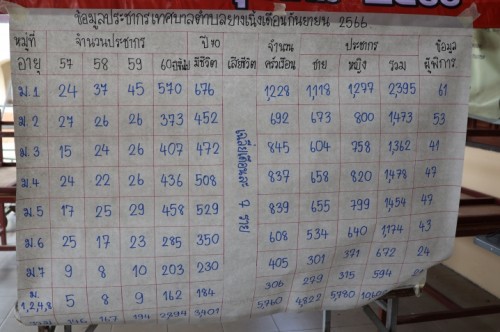 ข้อมูลประชากรเทศบาลตำบลยางเนิ้งเดือนกันยายน 2566
หมู่ที่ จำนวนประชากร ปี 60 จำนวน ประชากร ข้อมูล
อายุ 57 58 59 60 มีชีวิต เสียชีวิต ครัวเรือน ชาย หญิง รวม ผู้พิการ
ม.1 24 37 45 570 676 1,228 1,118 1,277 2,395 61
ม.2 27 26 26 373 452 692 673 800 1,473 53
ม.3 15 24 26 407 472 845 604 758 1,362 41
ม.4 24 22 26 436 508 837 658 820 1,478 47
ม.5 17 25 29 458 529 839 655 799 1,454 47
ม.6 25 17 23 285 350 608 534 640 1,174 43
ม.7 9 8 10 203 230 405 301 371 672 24
ม. 1,2,4,8 5 8 9 162 184 306 279 315 594
เฉลี่ยเดือนละ 7 ราย
5,760 4,822 5,780